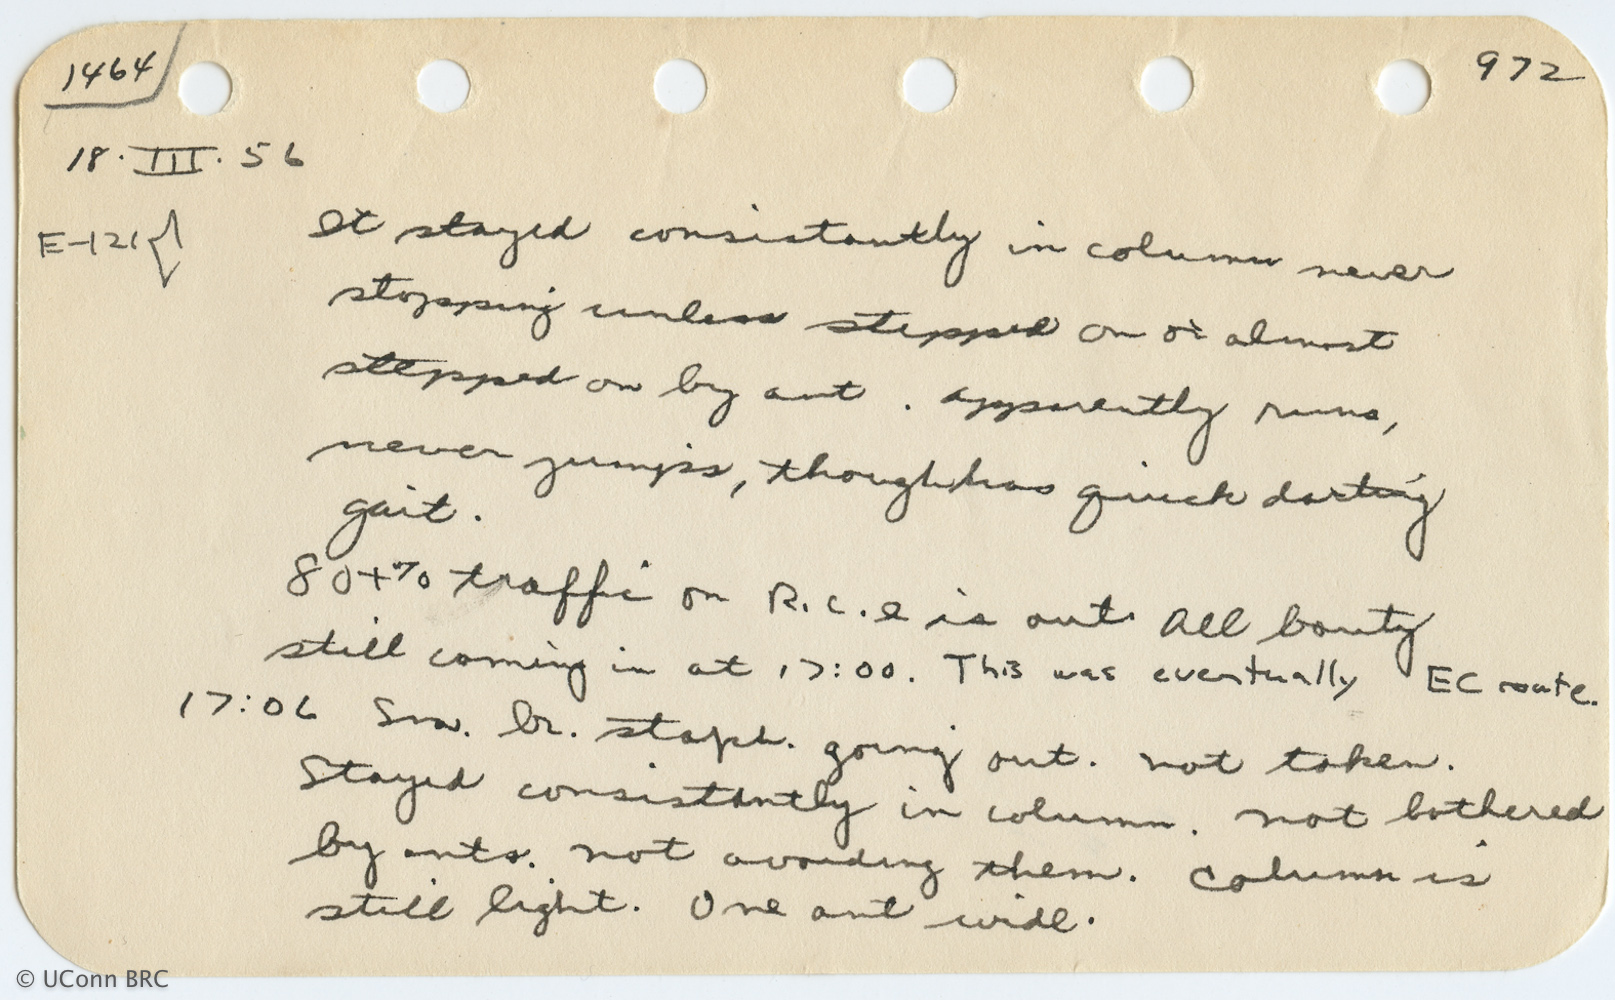 1464
972
18.III.56
E-121{
It stayed consistantly in column never
stopping unless stepped on or almost
stepped on by ant. Apparently runs,
never jumps, though has quick darting
gait.
80+% traffic on R.C.e is out. All booty
still coming in at 17:00. This was eventually EC route.
17:06 Sm. br. staph. going out. not taken.
Stayed consistantly in column. not bothered
by ants. not avoiding them. Column is
still light. One ant wide.
© UConn BRC